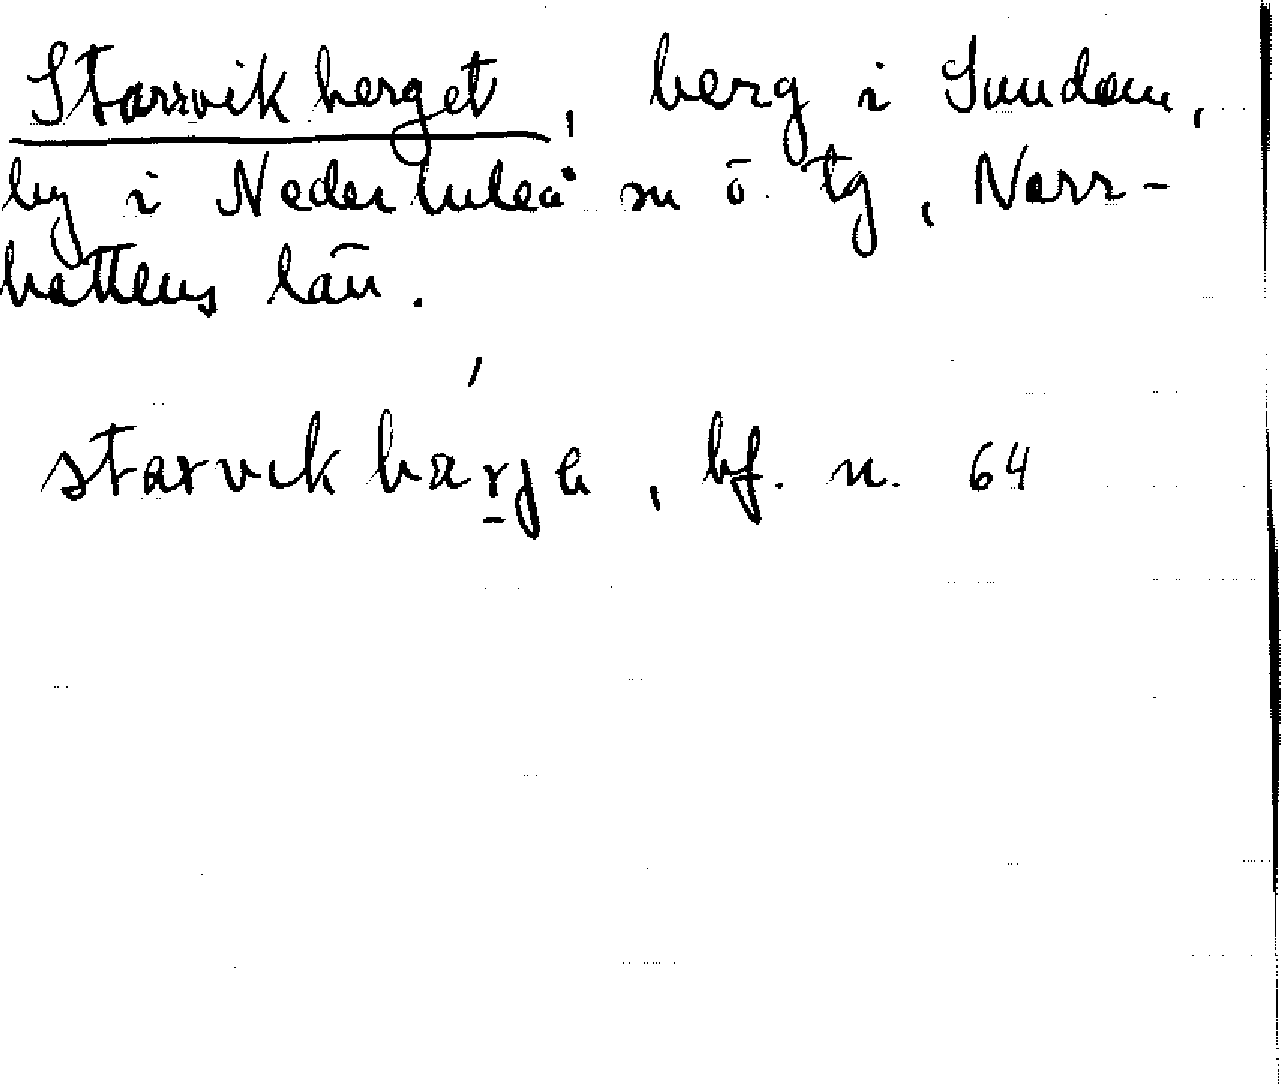 Starrvikberget, berg i Sundom,
by i Nederluleå sn ö. tg, Norr-
bottens län.
starvikbärje, bf. n. 64